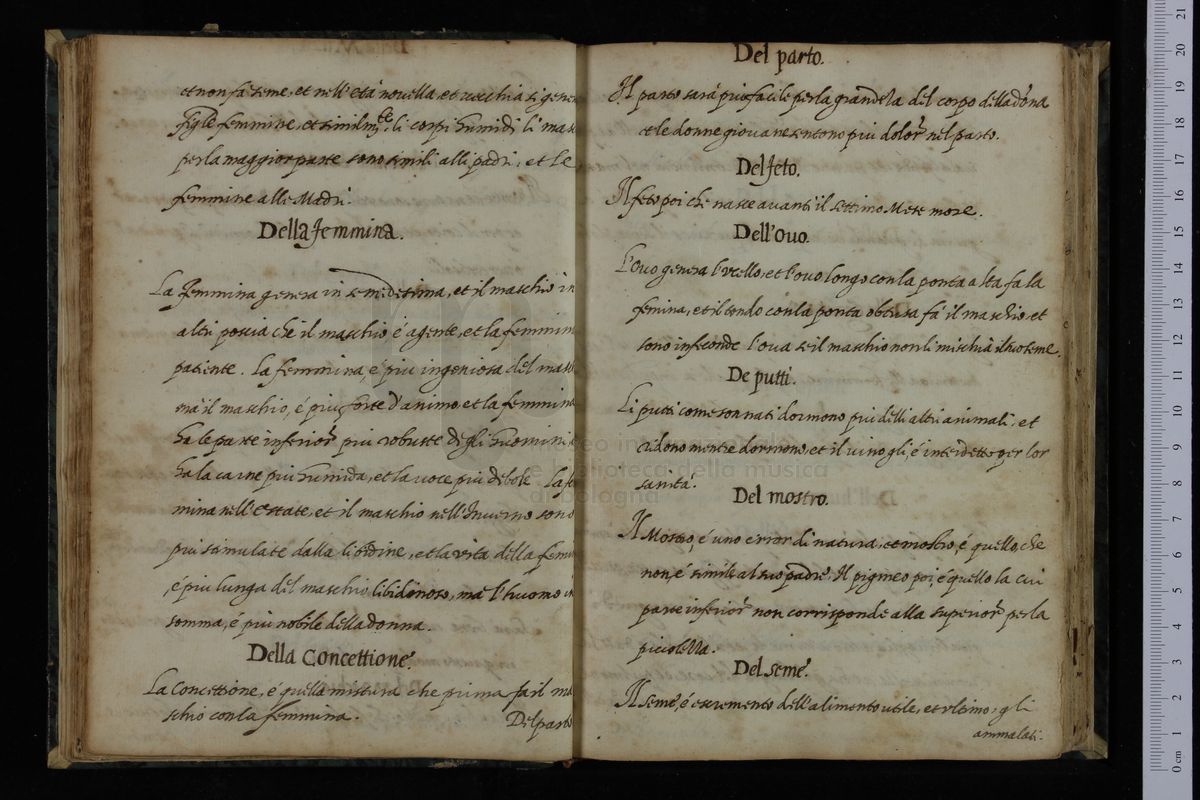 et non fa seme, et nell'età novella, et vecchia si gener
figle femmine, et similmte, li corpi humidi li mas
per la maggior parte sono simili alli padri, et le
femmine alle Madri.
Della femmina.
La femmina genera in se medesima, et il maschio in
altri poscia che il maschio é agente, et la femmin
patiente. La femmina, é piu ingeniosa del mas
ma il maschio, é piu forte d'animo, et la femmina
ha le parte inferior piu robuste degli huomini
ha la carne piu humida, et la voce piu debole La fe
mina nell'estate, et il maschio nell'Inverno sono
piu stimulate dalla libidine, et la vita della femi
é piu lunga del maschio libidinoso, ma l'huomo in
somma, é piu nobile della donna.
Della Concettione.
La Concettione, é quella mistura che prima fa il ma
schio con la femmina.
Del parto
Del parto.
Il parto sara piu facile per la grandeza del corpo della dona
et le donne giovane sentono piu dolor nel parto.
Del feto.
Il feto poi che nasce avanti il settimo Mese more.
Dell'Ovo.
L'Ovo genera l'ucello, et l'ovo longo con la ponta alta fa la
femina, et il tondo con la ponta obtusa fa il maschio, et
sono infeconde l'ova se il maschio non li mischia il suo seme.
De putti.
Li putti come son nati dormono piu delli altri animali, et
ridono mentre dormono, et il vino gli, é interdetto per lor
sanita.
Del mostro.
Il Mostro, é uno error di natura, et mostro, é quello, che
non, é simile al suo padre, Il pigmeo poi, é quello la cui
parte inferior non corrisponde alla superior per la
picciolella.
Del seme.
Il seme, é escremento dell'alimento utile, et ultimo, gli
ammalati.
museo internazionale
e biblioteca della musica
di bologna
21
20
19
18
17
16
15
14
13
12
11
10
9
8
7
6
5
4
3
2
1
0 cm